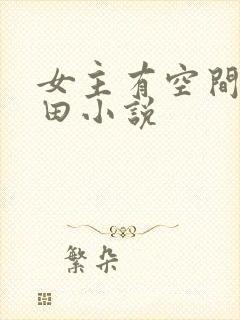 女主有空間
田小說
繁朵